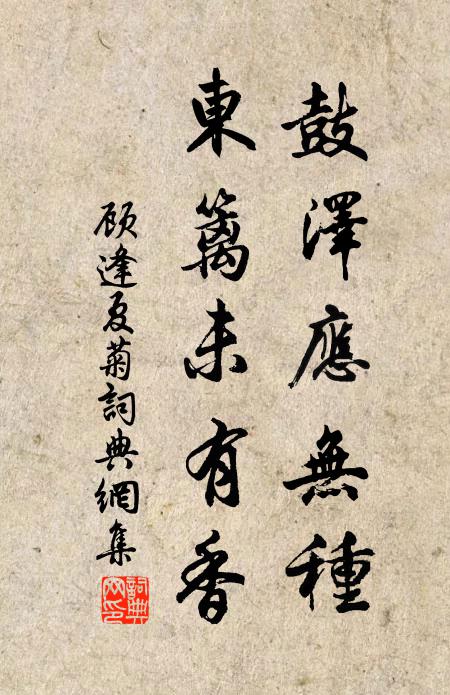 鼓澤應無種
東籬未有香
顾逢夏菊詞典網集
詞典网印